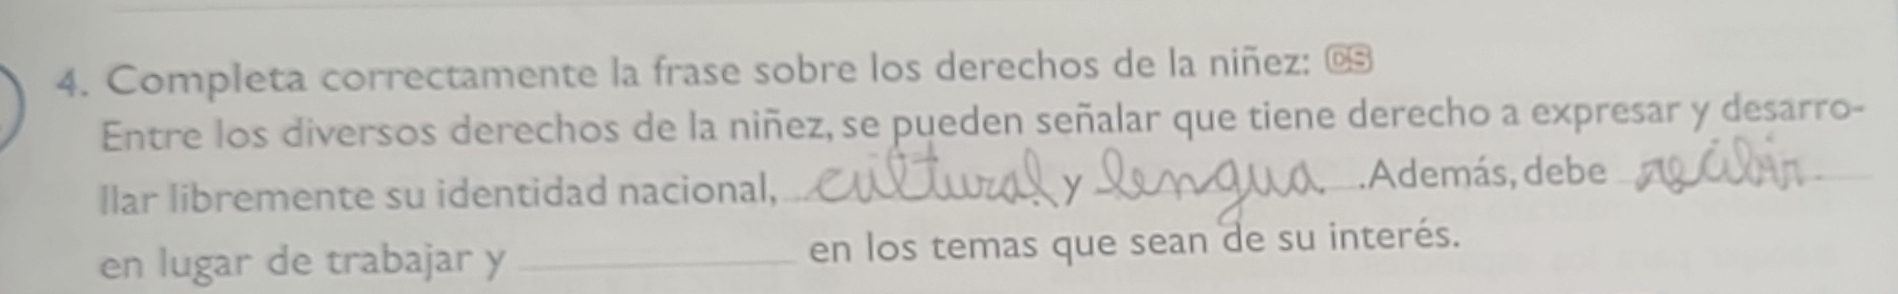 4. Completa correctamente la frase sobre los derechos de la niñez: CS
Entre los diversos derechos de la niñez, se pueden señalar que tiene derecho a expresar y desarro-
llar libremente su identidad nacional, cultural y lengua .Además, debe recibir
en lugar de trabajar y ____________ en los temas que sean de su interés.